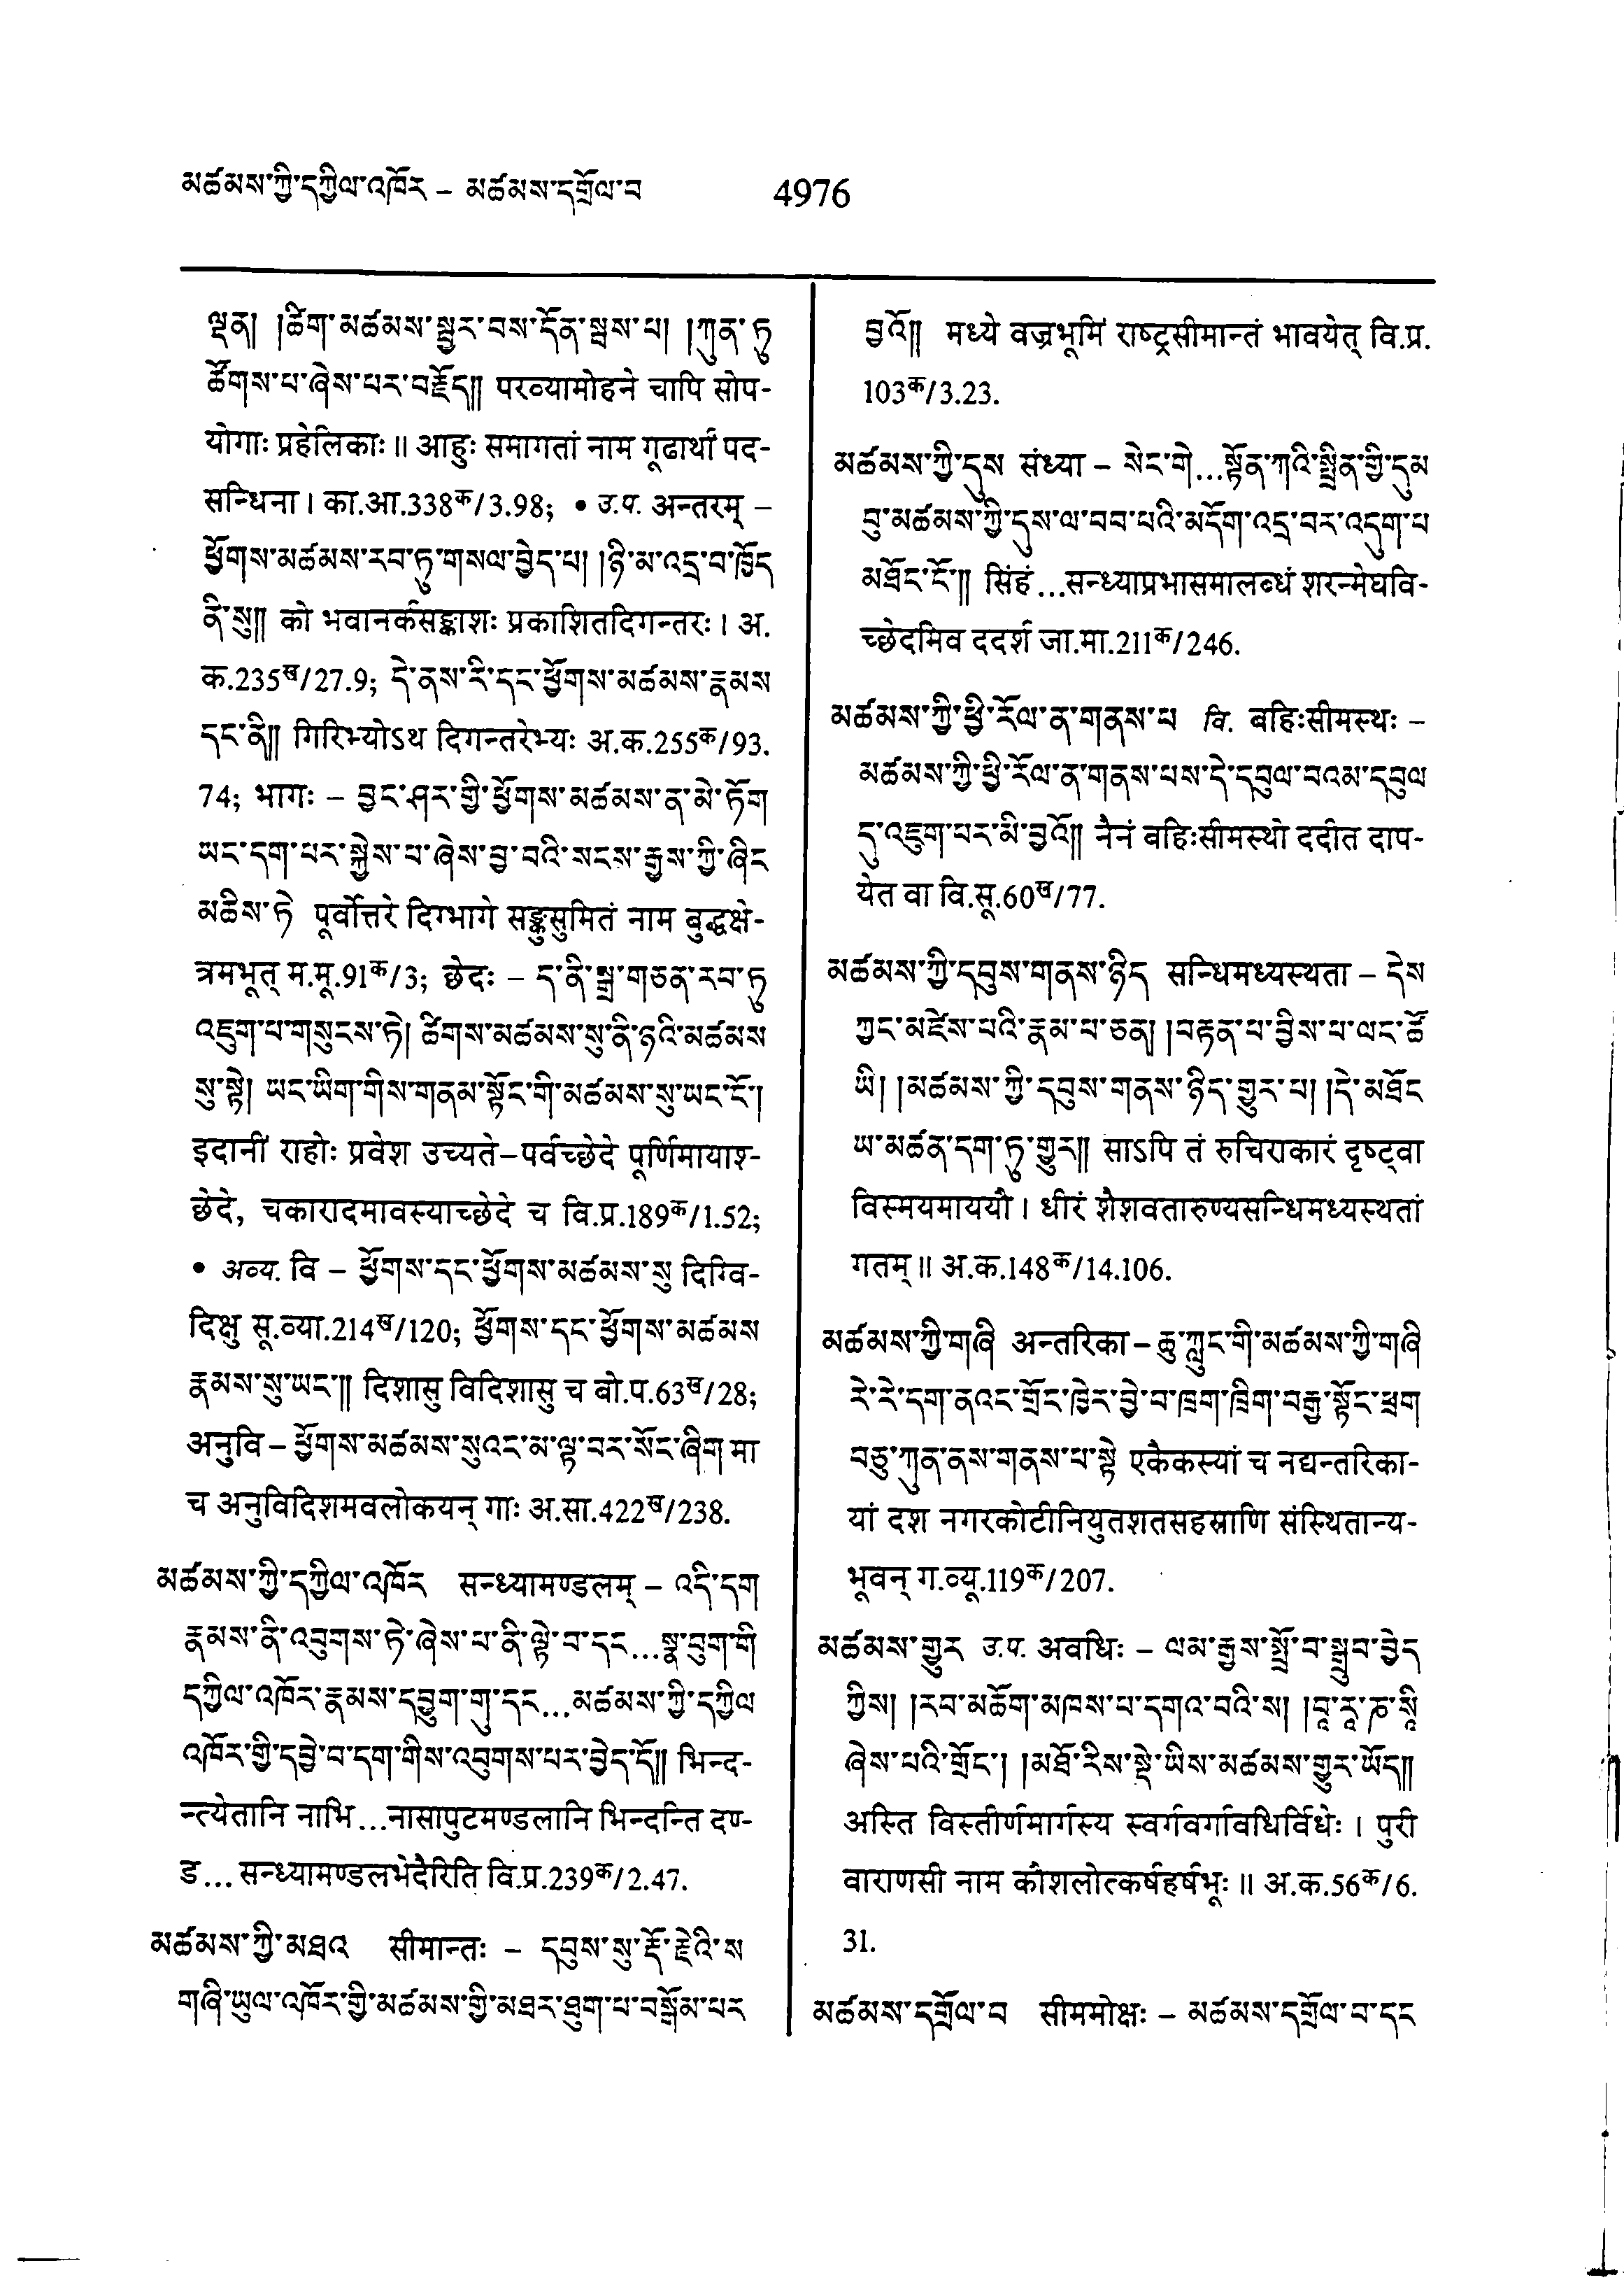 མཚམས་ཀྱི་དཀྱིལ་འཁོར – མཚམས་དགྲོལ་བ 4976
ལྡན། །ཚིག་མཚམས་སྦྱར་བས་དོན་སྦས་པ། །ཀུན་ཏུ
ཚོགས་པ་ཞེས་པར་བརྗོད།། परव्यामोहने चापि सोप-
योगाः प्रहेलिकाः ॥ आहुः समागतां नाम गूढार्थां पद-
सन्धिना । का.आ.338क/3.98; • उ.प. अन्तरम् –
ཕྱོགས་མཚམས་རབ་ཏུ་གསལ་བྱེད་པ། །ཉི་མ་འདྲ་བ་ཁྱོད
ནི་སུ།། को भवानर्कसङ्काशः प्रकाशितदिगन्तरः । अ.
क.235ख/27.9; དེ་ནས་རི་དང་ཕྱོགས་མཚམས་རྣམས
དང་ནི།། गिरिभ्योऽथ दिगन्तरेभ्यः अ.क.255क/93.
74; भागः – བྱང་ཤར་གྱི་ཕྱོགས་མཚམས་ན་མེ་ཏོག
ཡང་དག་པར་སྐྱེས་པ་ཞེས་བྱ་བའི་སངས་རྒྱས་ཀྱི་ཞིང
མཆིས་ཏེ पूर्वोत्तरे दिग्भागे सङ्कुसुमितं नाम बुद्धक्षे-
त्रमभूत् म.मू.91क/3; छेदः – ད་ནི་སྒྲ་གཅན་རབ་ཏུ
འཇུག་པ་གསུངས་ཏེ། ཚིགས་མཚམས་སུ་ནི་ཉའི་མཚམས
སུ་སྟེ། ཡང་ཡིག་གིས་གནམ་སྟོང་གི་མཚམས་སུ་ཡང་ངོ་།
इदानीं राहोः प्रवेश उच्यते–पर्वच्छेदे पूर्णिमायाश्-
छेदे, चकारादमावस्याच्छेदे च वि.प्र.189क/1.52;
• अव्य. वि – ཕྱོགས་དང་ཕྱོགས་མཚམས་སུ दिग्वि-
दिक्षु सू.व्या.214ख/120; ཕྱོགས་དང་ཕྱོགས་མཚམས
རྣམས་སུ་ཡང་།། दिशासु विदिशासु च बो.प.63ख/28;
अनुवि – ཕྱོགས་མཚམས་སུའང་མ་ལྟ་བར་སོང་ཞིག मा
च अनुविदिशमवलोकयन् गाः अ.सा.422ख/238.
མཚམས་ཀྱི་དཀྱིལ་འཁོར सन्ध्यामण्डलम् – འདི་དག
རྣམས་ནི་འབུགས་ཏེ་ཞེས་པ་ནི་ལྟེ་བ་དང...སྣ་བུག་གི
དཀྱིལ་འཁོར་རྣམས་དབྱུག་གུ་དང...མཚམས་ཀྱི་དཀྱིལ
འཁོར་གྱི་དབྱེ་བ་དག་གིས་འབུགས་པར་བྱེད་དོ།། भिन्द-
न्त्येतानि नाभि...नासापुटमण्डलानि भिन्दन्ति दण्-
ड...सन्ध्यामण्डलभेदैरिति वि.प्र.239क/2.47.
མཚམས་ཀྱི་མཐའ सीमान्तः – དབུས་སུ་རྡོ་རྗེའི་ས
གཞི་ཡུལ་འཁོར་གྱི་མཚམས་གྱི་མཐར་ཐུག་པ་བསྒོམ་པར
བྱའོ།། मध्ये वज्रभूमिं राष्ट्रसीमान्तं भावयेत् वि.प्र.
103क/3.23.
མཚམས་ཀྱི་དུས संध्या – སེང་གེ...སྟོན་ཀའི་སྤྲིན་གྱི་དུམ
བུ་མཚམས་ཀྱི་དུས་ལ་བབ་པའི་མདོག་འདྲ་བར་འདུག་པ
མཐོང་ངོ་།། सिंहं...सन्ध्याप्रभासमालब्धं शरन्मेघवि-
च्छेदमिव ददर्श जा.मा.211क/246.
མཚམས་ཀྱི་ཕྱི་རོལ་ན་གནས་པ वि. बहिःसीमस्थः –
མཚམས་ཀྱི་ཕྱི་རོལ་ན་གནས་པས་དེ་དབུལ་བའམ་དབུལ
དུ་འཇུག་པར་མི་བྱའོ།། नैनं बहिःसीमस्थो ददीत दाप-
येत वा वि.सू.60ख/77.
མཚམས་ཀྱི་དབུས་གནས་ཉིད सन्धिमध्यस्थता – དེས
ཀྱང་མཛེས་པའི་རྣམ་པ་ཅན། །བརྟན་པ་བྱིས་པ་ལང་ཚོ
ཡི། །མཚམས་ཀྱི་དབུས་གནས་ཉིད་གྱུར་པ། །དེ་མཐོང
ཡ་མཚན་དག་ཏུ་གྱུར།། साऽपि तं रुचिराकारं दृष्ट्वा
विस्मयमाययौ । धीरं शैशवतारुण्यसन्धिमध्यस्थतां
गतम् ॥ अ.क.148क/14.106.
མཚམས་ཀྱི་གཞི अन्तरिका – ཆུ་ཀླུང་གི་མཚམས་ཀྱི་གཞི
རེ་རེ་དག་ནའང་གྲོང་ཁྱེར་བྱེ་བ་ཁྲག་ཁྲིག་བརྒྱ་སྟོང་ཕྲག
བཅུ་ཀུན་ནས་གནས་པ་སྟེ एकैकस्यां च नद्यन्तरिका-
यां दश नगरकोटीनियुतशतसहस्राणि संस्थितान्य-
भूवन् ग.व्यू.119क/207.
མཚམས་གྱུར उ.प. अवधिः – ལམ་རྒྱས་སྤྲོ་བ་སྒྲུབ་བྱེད
ཀྱིས། །རབ་མཆོག་མཁས་པ་དགའ་བའི་ས། །བཱ་རཱ་ཎ་སཱི
ཞེས་པའི་གྲོང་། །མཐོ་རིས་སྡེ་ཡིས་མཚམས་གྱུར་ཡོད།།
अस्ति विस्तीर्णमार्गस्य स्वर्गवर्गावधिर्विधेः । पुरी
वाराणसी नाम कौशलोत्कर्षहर्षभूः ॥ अ.क.56क/6.
31.
མཚམས་དགྲོལ་བ सीममोक्षः – མཚམས་དགྲོལ་བ་དང